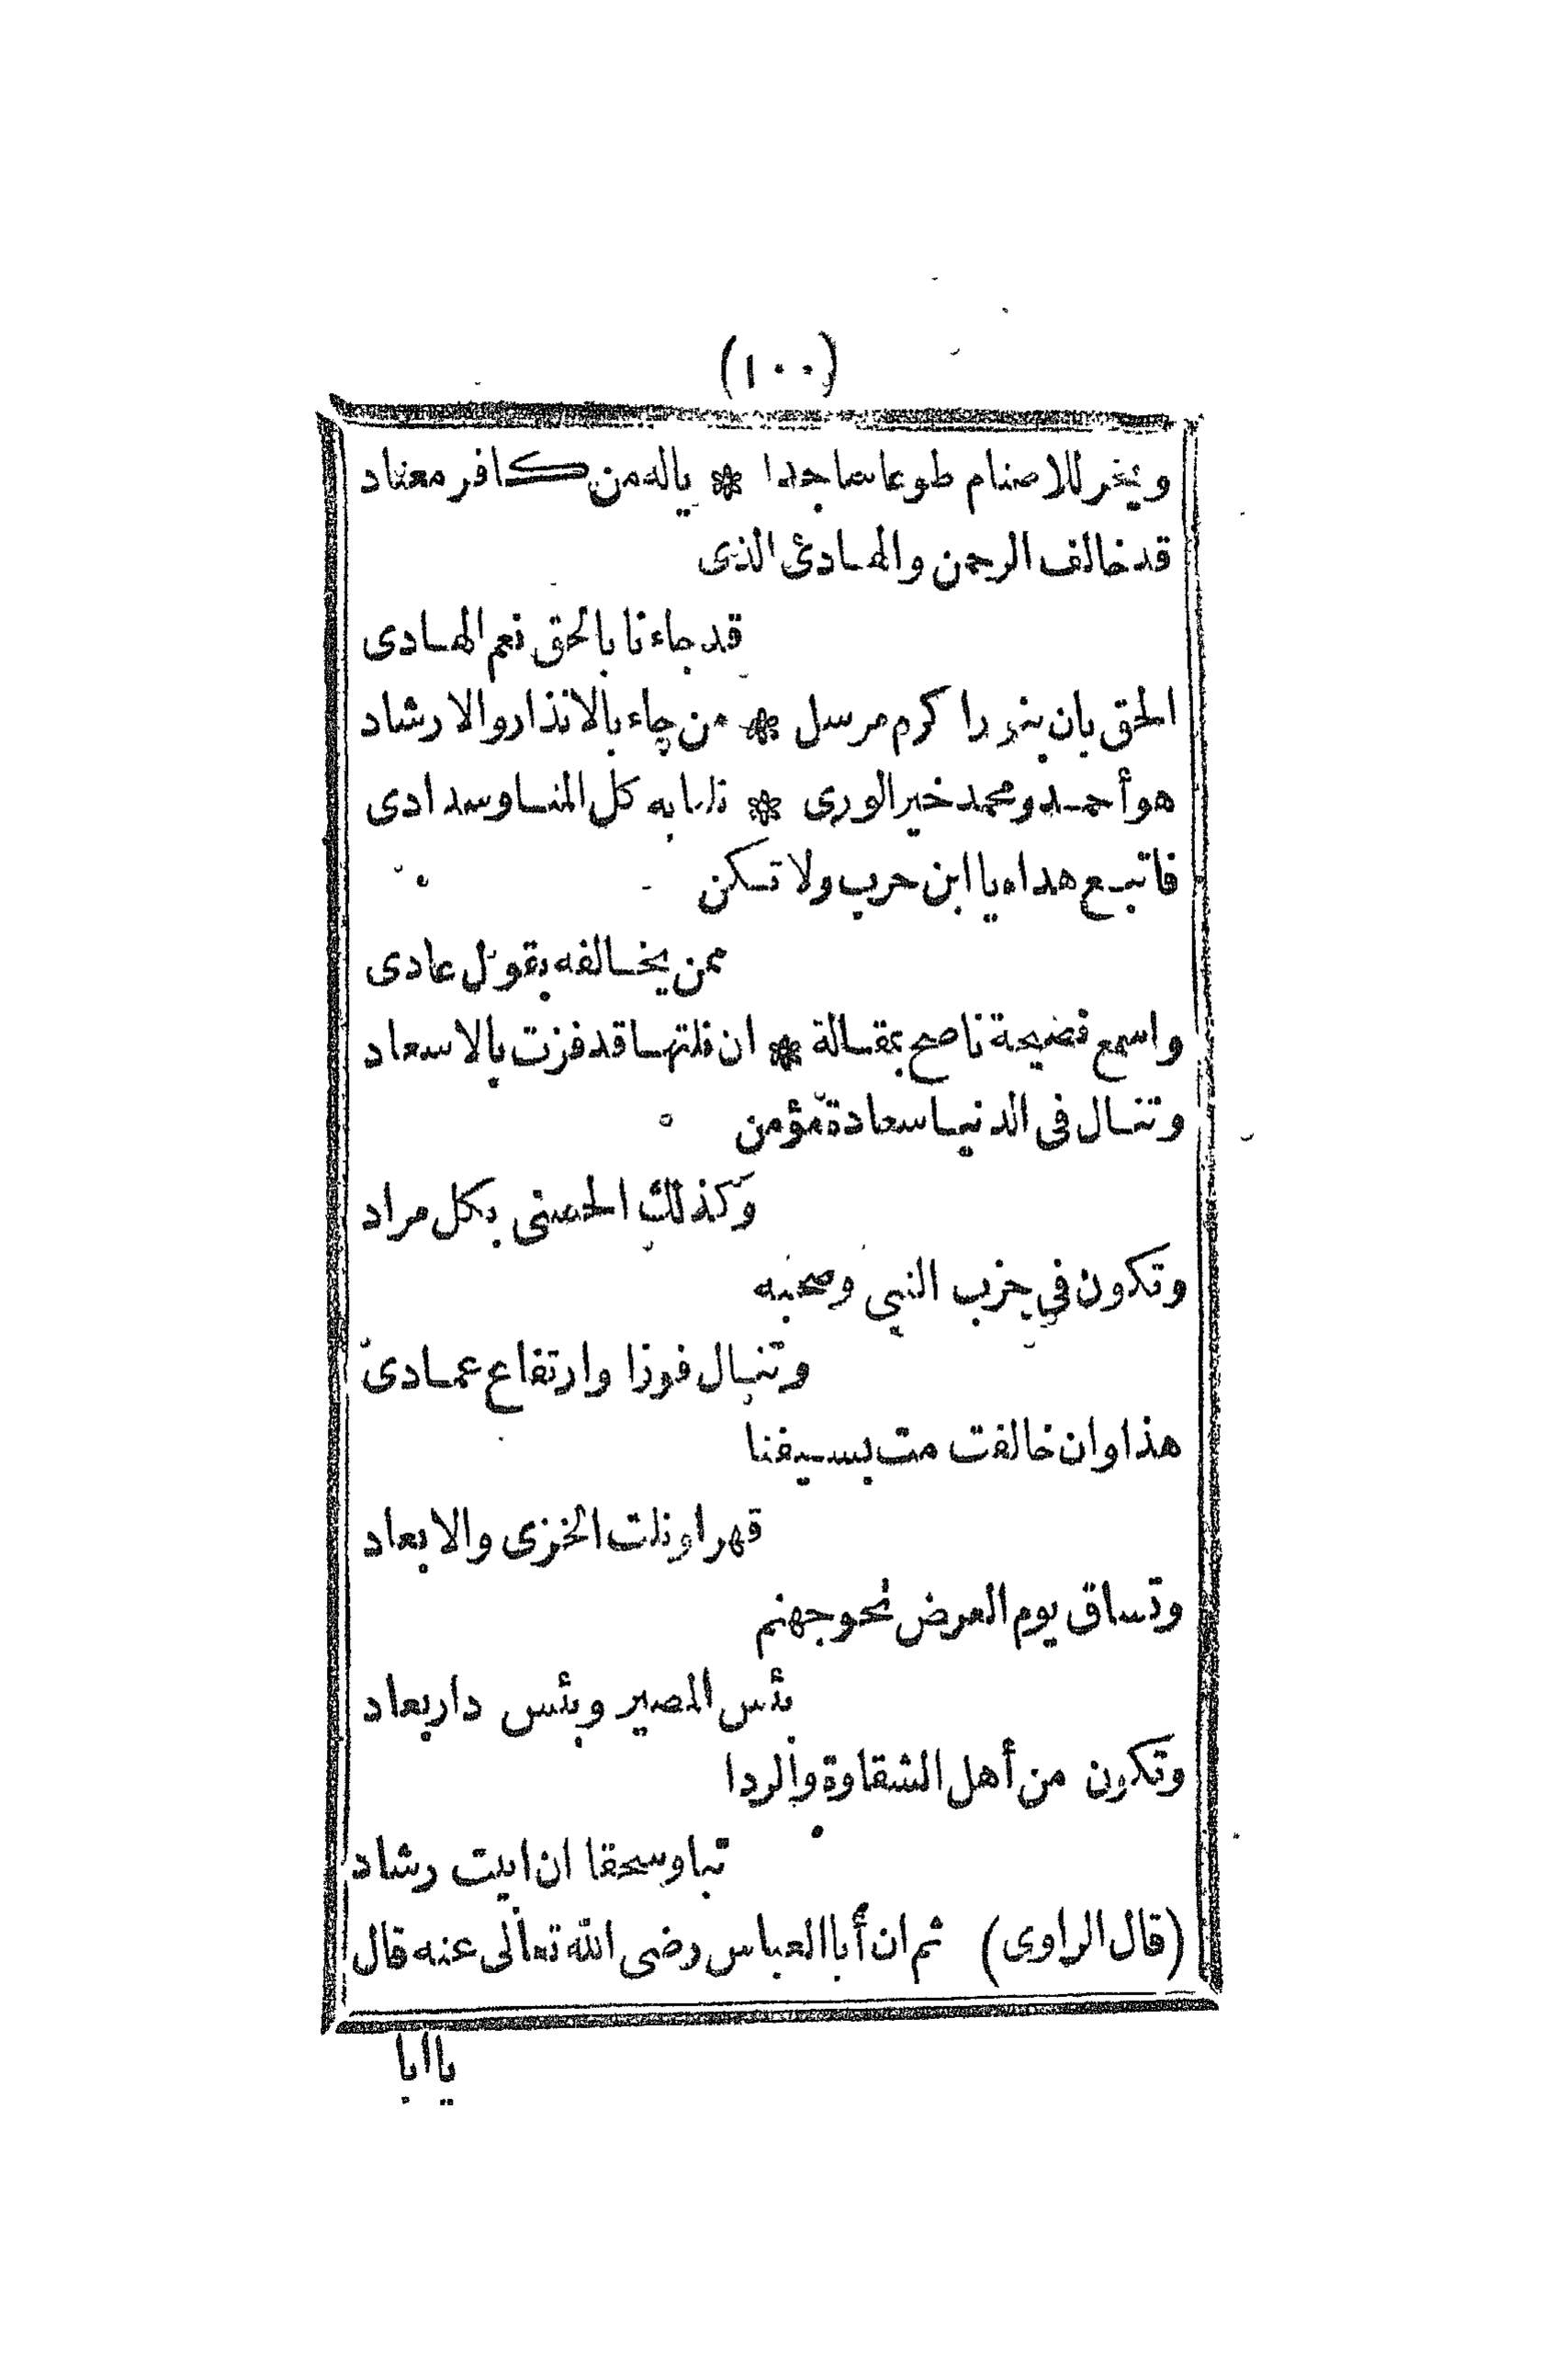 (١٠٠)
ويخر للاصنام طوعا ساجدا * ياله من كافر معتاد
قد خالف الرحمن والهادى الذى
قد جاءنا بالحق نعم الهادى
الحق بان بنور اكرم مرسل * من جاء بالانذار والارشاد
هو أحمد ومحمد خير الورى * نلنا به كل المنا وسدادى
فاتبع هداه يا ابن حرب ولا تكن
ممن يخالفه بقول عادى
واسمع نصيحة ناصح بمقالة * ان نلتها قد فزت بالاسعاد
وتنال فى الدنيا سعادة مؤمن
وكذلك الحسنى بكل مراد
وتكون في حزب النبي وصحبه
وتنال فوزا وارتفاع عمادى
هذا وان خالفت مت بسيفنا
قهرا ونلت الخزى والابعاد
وتساق يوم العرض نحو جهنم
بئس المصير وبئس دار بعاد
وتكون من أهل الشقاوة والردا
تبا وسحقا ان ابيت رشاد
(قال الراوى) ثم ان أبا العباس رضى الله تعالى عنه قال
يا ابا